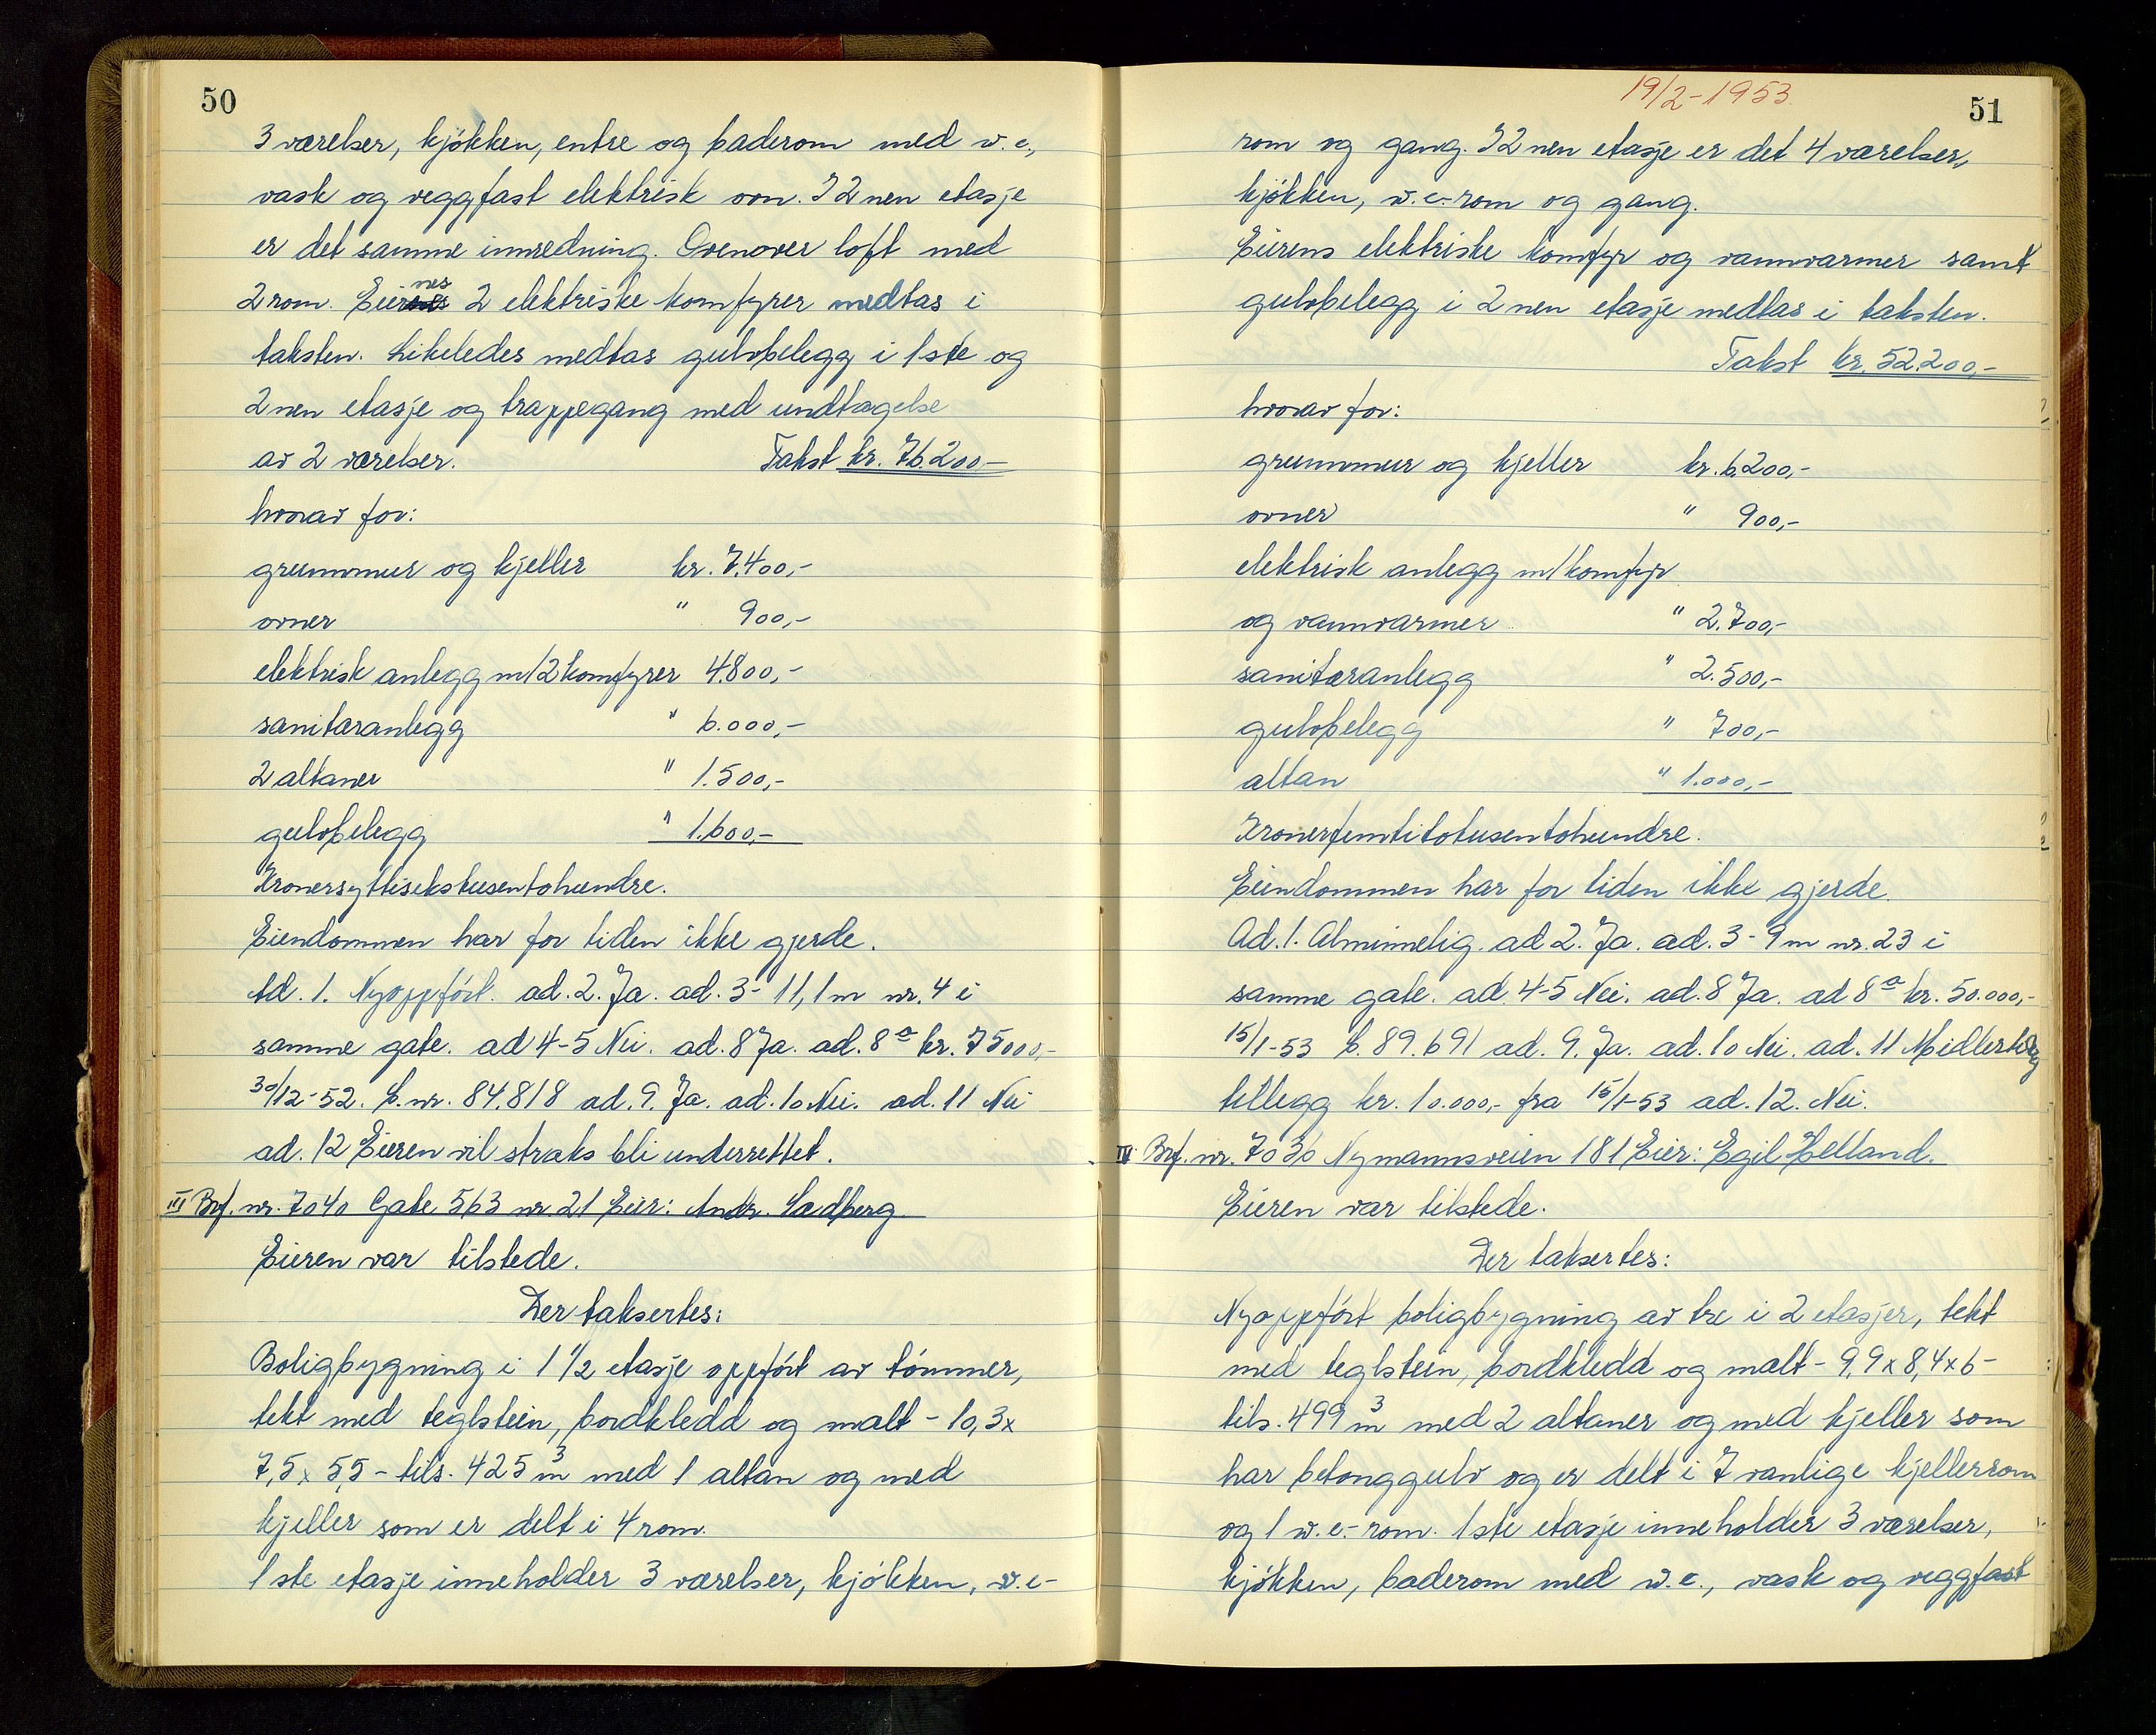 50
3 værelser, kjøkken, entre og baderom med w.c.,
vask og veggfast elektrisk ovn. I 2nen etasje
er det samme innredning. Ovenover loft med
2 rom. Eiernes 2 elektriske komfyrer medtas i
taksten. Likeledes medtas gulvbelegg i 1ste og
2nen etasje og trappegang med undtagelse
av 2 værelser. Takst kr. 76.200-
hvorav for:
grunnmur og kjeller kr. 7.400,-
ovner " 900,-
elektrisk anlegg m/2 komfyrer 4.800,-
sanitæranlegg " 6.000,-
2 altaner " 1.500,-
gulvbelegg " 1.600,-
Kronersyttisekstusentohundre.
Eiendommen har for tiden ikke gjerde.
Ad. 1. Nyoppført. ad. 2. Ja. ad. 3- 11,1 m nr. 4 i
samme gate. ad 4-5 Nei. ad. 8 Ja. ad. 8a kr. 75000,-
30/12-52. P. nr. 84.818 ad. 9. Ja. ad. 10 Nei. ad. 11 Nei
ad. 12 Eieren vil straks bli underrettet.
III Brf. nr. 7040 Gate 563 nr. 21 Eier: Andr. Sædberg.
Eieren var tilstede.
Der taksertes:
Boligbygning i 1 1/2 etasje oppført av tømmer,
tekt med teglstein, bordkledd og malt - 10,3 x
7,5 x 5,5 - tils. 425 m3 med 1 altan og med
kjeller som er delt i 4 rom.
1ste etasje inneholder 3 værelser, kjøkken, w.c-
19/2-1953.
51
rom og gang. I 2nen etasje er det 4 værelser,
kjøkken, w.c-rom og gang.
Eierens elektriske komfyr og vannvarmer samt
gulvbelegg i 2nen etasje medtas i taksten.
Takst kr. 52.200,-
hvorav for:
grunnmur og kjeller kr. 6.200,-
ovner " 900,-
elektrisk anlegg m/komfyr
og vannvarmer " 2.700,-
sanitæranlegg " 2.500,-
gulvbelegg " 700,-
altan " 1.000,-
Kronerfemtitotusentohundre.
Eiendommen har for tiden ikke gjerde.
Ad. 1. Alminnelig. ad 2. Ja. ad. 3- 9 m nr. 23 i
samme gate. ad. 4-5 Nei. ad. 8 Ja. ad 8a kr. 50.000,-
15/1-53 P. 89.691 ad. 9. Ja. ad. 10 Nei. ad. 11 Midlertidig
tillegg kr. 10.000,- fra 15/1-53 ad. 12. Nei.
IV Brf. nr. 7030 Nymannsveien 181 Eier: Egil Helland.
Eieren var tilstede.
Der taksertes:
Nyoppført boligbygning av tre i 2 etasjer, tekt
med teglstein, bordkledd og malt - 9,9 x 8,4 x 6 -
tils. 499 m3 med 2 altaner og med kjeller som
har betonggulv og er delt i 7 vanlige kjellerrom
og 1 w.c.-rom. 1ste etasje inneholder 3 værelser,
kjøkken, baderom med w.c., vask og veggfast